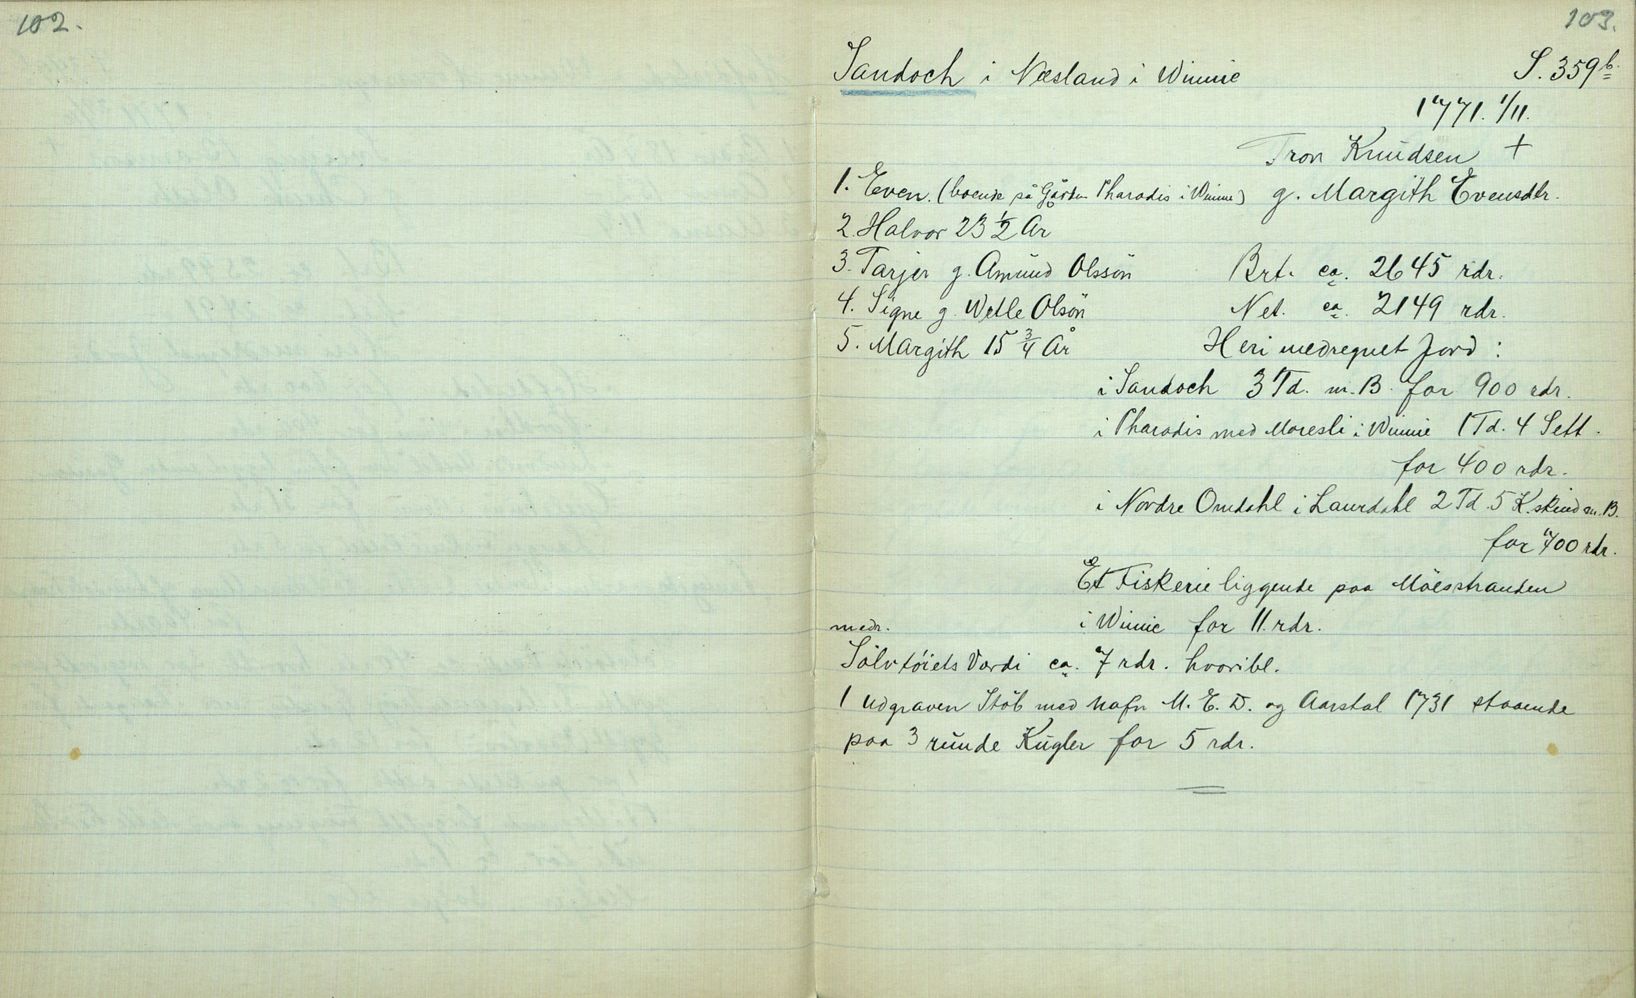 102.
103.
Sandoch i Næsland i Winnie S. 359 b.
1771. 1/11.
Tron Knudsen +
1. Even. (boende på Gården Pharadis i Winnie) g. Margith Evensdtr.
2. Halvor 23 1/2 År
3. Tarjer g. Amund Olssön Brt. ca. 2645 rdr.
4. Signe g. Wetle Olsön Net. ca. 2149 rdr.
5. Margith 15 3/4 År Heri medregnet Jord :
i Sandoch 3 Td. m. B. for 900 rdr.
i Pharadis med Moresli i Winnie 1 Td. 4 Sett.
for 400 rdr.
i Nordre Omdahl i Laurdahl 2 Td. 5 K.skind m. B.
for 700 rdr.
Et Fiskerie liggende paa Möesstranden
i Winie for 11. rdr.
medr.
Sölvtöiets Værdi ca. 7 rdr. hvoribl.
1 udgraven Stöb med nafn M. E. D. og Aarstal 1731 staaende
paa 3 runde Kugler for 5 rdr.